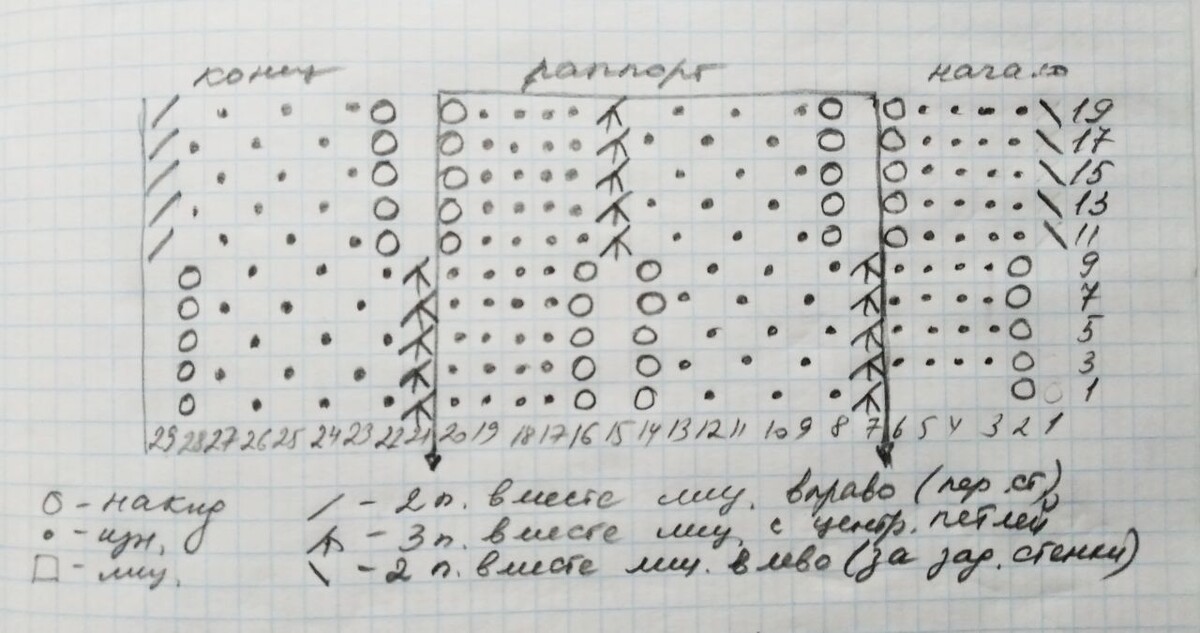 конец раппорт начало
19
17
15
13
11
9
7
5
3
1
29 28 27 26 25 24 23 22 21 20 19 18 17 16 15 14 13 12 11 10 9 8 7 6 5 4 3 2 1
О - накид / - 2 п. вместе лиц. вправо (пер. ст)
• - изн. - 3 п. вместе лиц. с центр. петлей
□ - лиц. \ - 2 п. вместе лиц. влево (за зад. стенки)